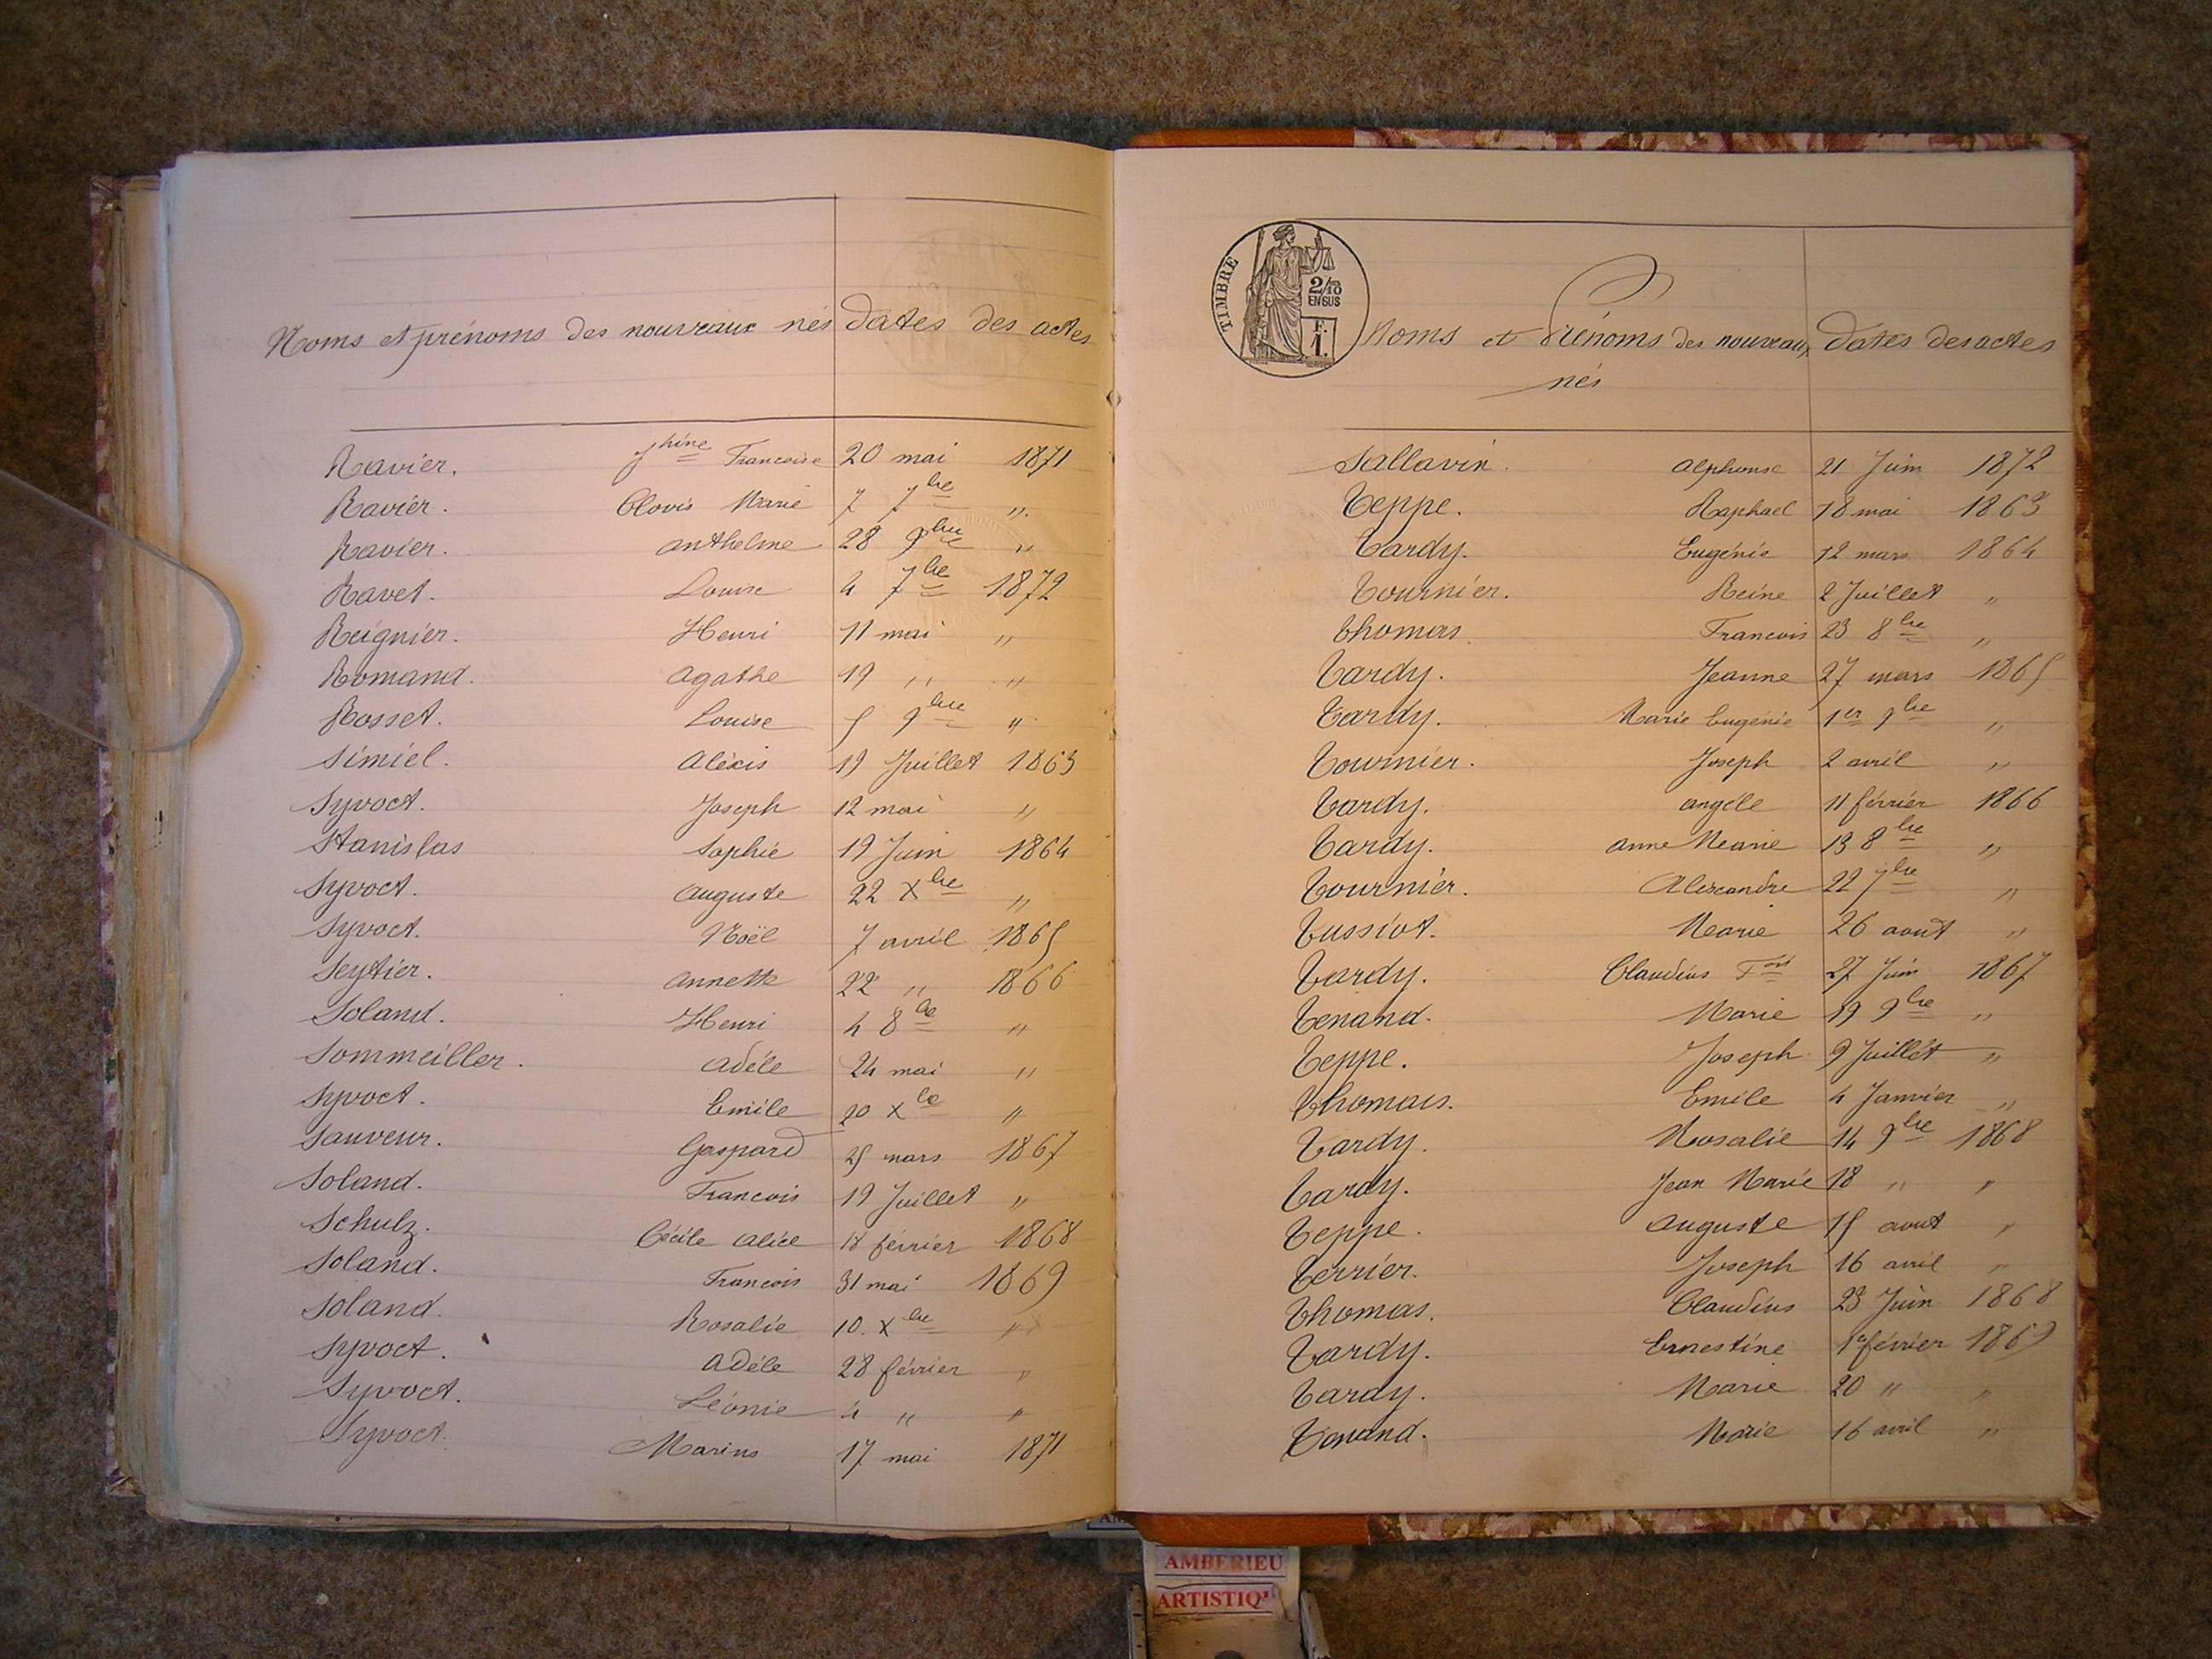 Noms et prénoms des nouveaux nés dates des actes
Ravier. Jhine Francoise 20 mai 1871
Ravier. Clovis Marie 7 7bre "
Ravier. anthelme 28 9bre "
Ravet. Louise 4 7bre 1872
Reignier. Henri 11 mai "
Romand. agathe 19 " "
Rosset. Louise 5 9bre "
Simiel. Aléxis 19 Juillet 1863
Syvoct. Joseph 12 mai "
Stanislas Sophie 19 Juin 1864
Syvoct. auguste 22 Xbre "
Syvoct. Noël 7 avril 1865
Seytier. annette 22 " 1866
Soland. Henri 4 8bre "
Sommeiller. adéle 24 mai "
Syvoct. Emile 20 Xbre "
Sauveur. Gaspard 25 mars 1867
Soland. Francois 19 Juillet "
Schulz. Cécile alice 18 février 1868
Soland. Francois 31 mai 1869
Soland. Rosalie 10. Xbre "
Syvoct. adéle 28 février "
Syvoct. Léonie 4 " "
Syvoct. Marius 17 mai 1871
TIMBRE
2/10
EN SUS
F.
1.
Noms et Prénoms des nouveaux dates des actes
nés
Sallavin. alphonse 21 Juin 1872
Teppe. Raphael 18 mai 1863
Tardy. Eugénie 12 mars 1864
Tournier. Reine 2 Juillet "
Thomas. Francois 23 8bre "
Tardy. Jeanne 27 mars 1865
Tardy. Marie Eugénie 1er 9bre "
Tournier. Joseph 2 avril "
Tardy. angéle 11 février 1866
Tardy. anne Marie 13 8bre "
Tournier. Alexandre 22 7bre "
Tussiot. Marie 26 aout "
Tardy. Claudius Fois 27 Juin 1867
Tenand. Marie 19 9bre "
Teppe. Joseph 9 Juillet "
Thomas. Emile 4 Janvier "
Tardy. Rosalie 14 9bre 1868
Tardy. Jean Marie 18 " "
Teppe. auguste 15 aout "
Terrier. Joseph 16 avril "
Thomas. Claudius 23 Juin 1868
Tardy. Ernestine février 1869
Tardy. Marie 20 " "
Tenand. Marie 16 avril "
AMBERIEU
ARTISTIQ